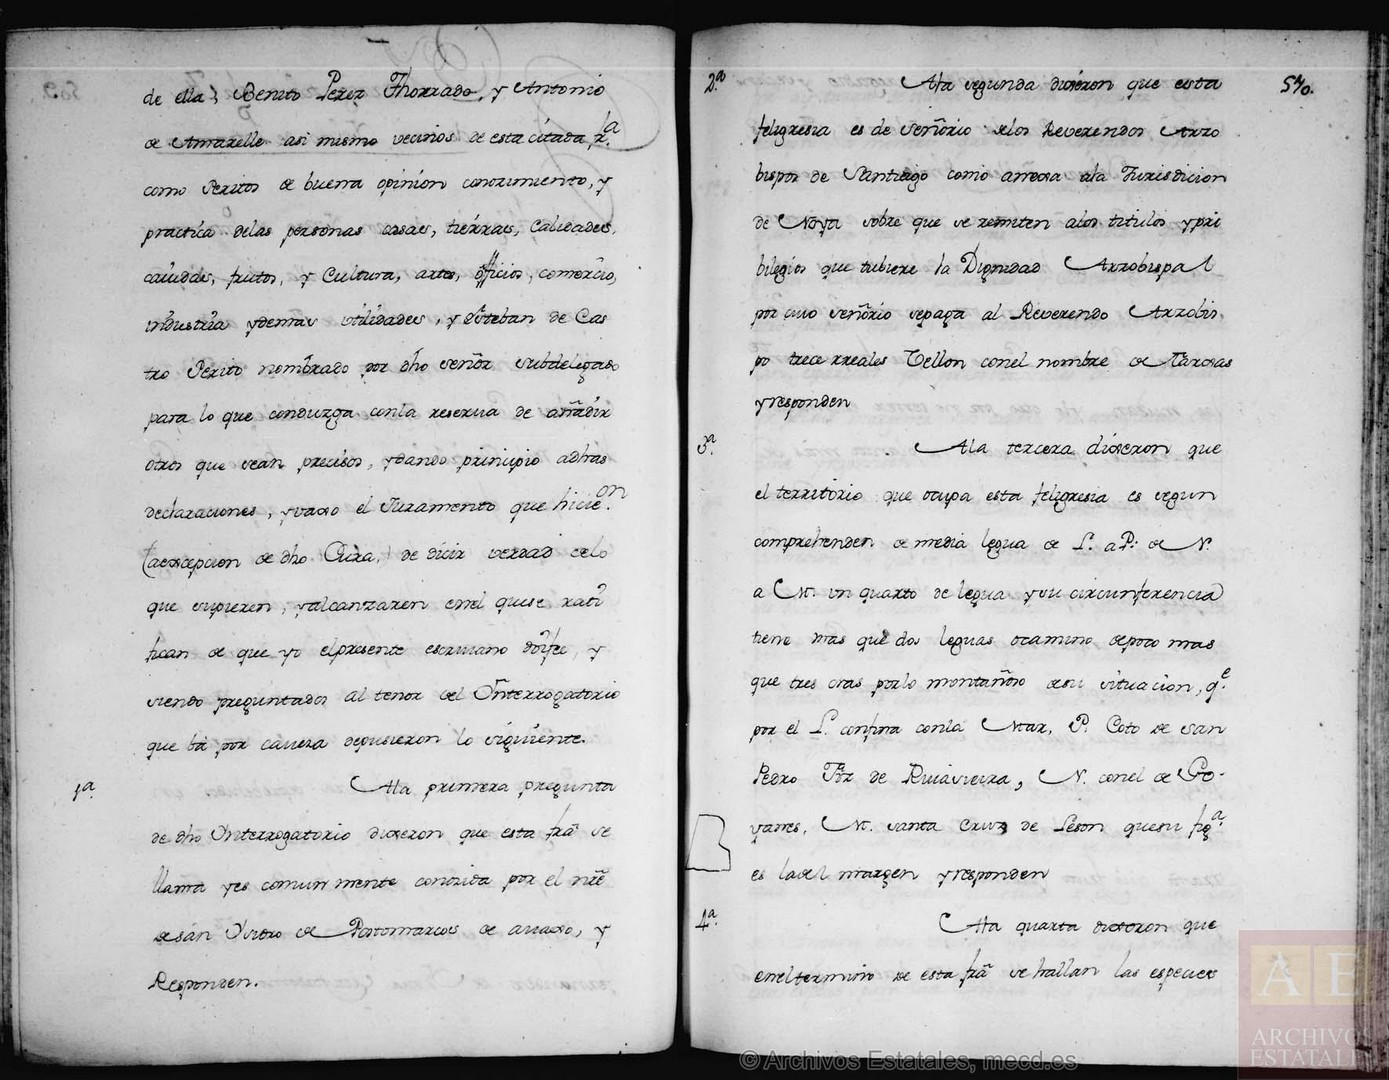 de ella; Benito Perez Thorrado, y Antonio
de Amarelle asi mismo vecinos de esta citada fr.ª
como Peritos de buena opinion conozimiento, y
practica delas personas casas, tierras, Calidades,
cauidas, frutos, y Cultura, artes, officios, comercio,
industria ydemas utilidades, y Esteban de Cas
tro Perito nombrado por dho señor subdelegado
para lo que conduzga conla reserua de añadir
otros que sean precisos, ydando principio adhas
declaraciones, yvaxo el Juramento que hicie.on
(aexcepcion de dho Cura,) de dicir verdad delo
que supieren, yalcanzaren enel quese rati
fican de que yo elpresente escriuano doifee, y
siendo preguntados al tenor del Ynterrogatorio
que bá por cauera depusieron lo siguiente.
1ª. Ala primera pregunta
de dho Ynterrogatorio dixeron que esta frâ se
llama yes comunmente conozida por el nre
de sán Ysidro de Postomarcos de auaxo, y
Responden.
570.
2.ª Ala segunda dixeron que esta
feligresia es de señorio delos Reverendos Arzo
bispos de Santiago como anexa ala Jurisdicion
de Noya sobre que se remiten alos titulos ypri
bilegios que tubiere la Dignidad Arzobispal
por cuio señorio sepaga al Reverendo Arzobis.
po trece rreales Vellon conel nombre de Tarexas
yresponden
3ª. Ala tercera dixeron que
el territorio que ocupa esta feligresia es segun
comprehenden de media legua de L. a P. de N.
a M. un quarto de legua ysu circunferencia
tiene mas que dos leguas ocamino depoco mas
que tres oras porlo montañoso desu situacion, q.e
por el L. confina conla Mar, P. Coto de San
Pedro Fiz de Ruiavieira, N. conel de Go-
yanes, M. santa Cruz de Leson quesu fig.ª
es ladel margen yresponden
4ª. Ala quarta dixeron que
eneltermino de esta frâ se hallan las especies
© Archivos Estatales, mecd.es
AE
ARCHIVOS
ESTATALES